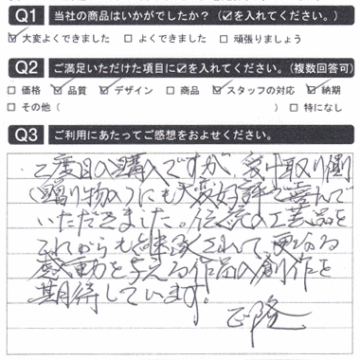 Q1 当社の商品はいかがでしたか？（☑を入れてください。）
☑ 大変よくできました □ よくできました □ 頑張りましょう
Q2 ご満足いただけた項目に☑を入れてください。（複数回答可）
□ 価格 ☑ 品質 ☑ デザイン □ 商品 ☑ スタッフの対応 ☑ 納期
□ その他（ ） □ 特になし
Q3 ご利用にあたってご感想をおよせください。
二度目の購入ですが、受け取り側
（贈り物の）にも大変好評で喜んで
いただきました。伝統の工芸品を
これからも継承されて、更なる
感動を与える作品の創作を
期待しています。
正隆